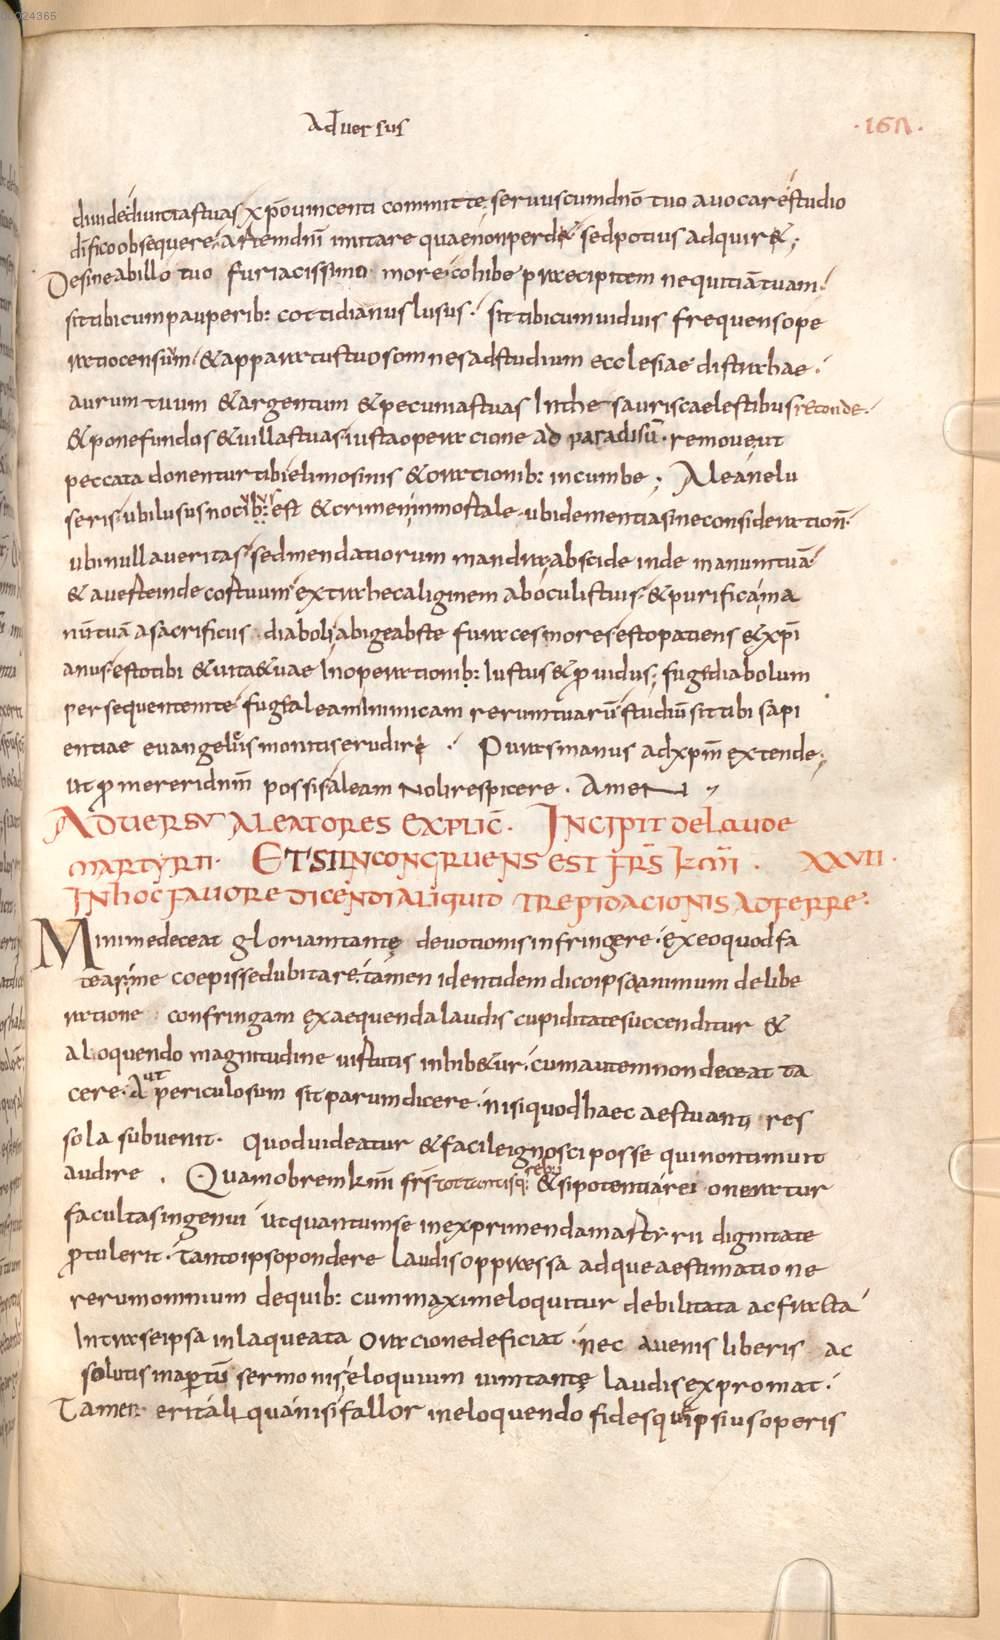 00024365
Adversus
·167·
divide divitias tuas xp̄o vincenti committe servus cum dn̄o tuo avocare studio
difico obsequere artem dn̄i imitare quae non perd& sed potius adquir&;
Desine ab illo tuo furiacissimo more cohibe praecipitem nequitiā tuam
sit tibi cum pauperib: cottidianus lusus· sit tibi cum viduis frequens ope
ratio censum & apparatus tuos omnes ad studium ecclesiae distrahae·
aurum tuum & argentum & pecunias tuas In the sauris caelestibus reconde·
& pone fundos & villas tuas iusta operacione ad paradisū· removeut
peccata donentur tibi elimosinis & orationib: incumbe; Aleane lu
seris ubi lusus nocib: est & crimen inmortale· ubi dementia sine consideration̄·
ubi nulla veritas sed mendatiorum mandra abscide inde manum tuā
& averte inde cor tuum extrahe caliginem ab oculis tuis & purifica ma
nū tuā a sacrificiis diaboli abige abs te furaces mores esto patiens & xp̄i
anus esto tibi & vita & vae In operationib: Iustus & providus; fuge diabolum
persequentem te fuge aleam Inimicam rerum tuarū studiū sit tibi sapi
entiae evangeliis monitis erudire · Puras manus ad xp̄m extende;
ut promereri dnm̄ possis aleam Noli respicere· AmeN
AdversV ALEATORES EXPLIC̄· INCIPIT de LAude
MARTYRII· ETSI INCONGRUENS EST FR̄S Km̄i· XXVII·
IN hoc FAVORE dicendi Aliquid TREPIDACIONIS AdFERRE·
Minime deceat gloriam tantę devotionis infringere· ex eo quod fa
tear me coepisse dubitare tamen identidem dico ipsa animum delibe
ratione confringam exaequenda laudis cupiditate succenditur &
aloquendo magnitudine virtutis inhib&ur· cum autem non deceat ta
cere· Aut periculosum sit parum dicere· nisi quod haec aestuanti res
sola subvenit· Quod videatur & facile ignosci posse qui non timuit
audire · Quamobrem km̄i fr̄s tot tantisq: rebus & si potentia rei oneratur
facultas ingenii ut quantum se in exprimenda martyrii dignitate
protulerit· tanto ipso pondere laudis oppraessa adque aestimatione
rerum omnium de quib: cum maxime loquitur debilitata ac fracta
Intra se ipsa inlaqueata oracione deficiat· nec avenis liberis ac
solutis in aptū sermonis eloquium vim tantę laudis expromat·
Tamen erit aliqua nisi fallor in eloquendo fides qui ipsius operis